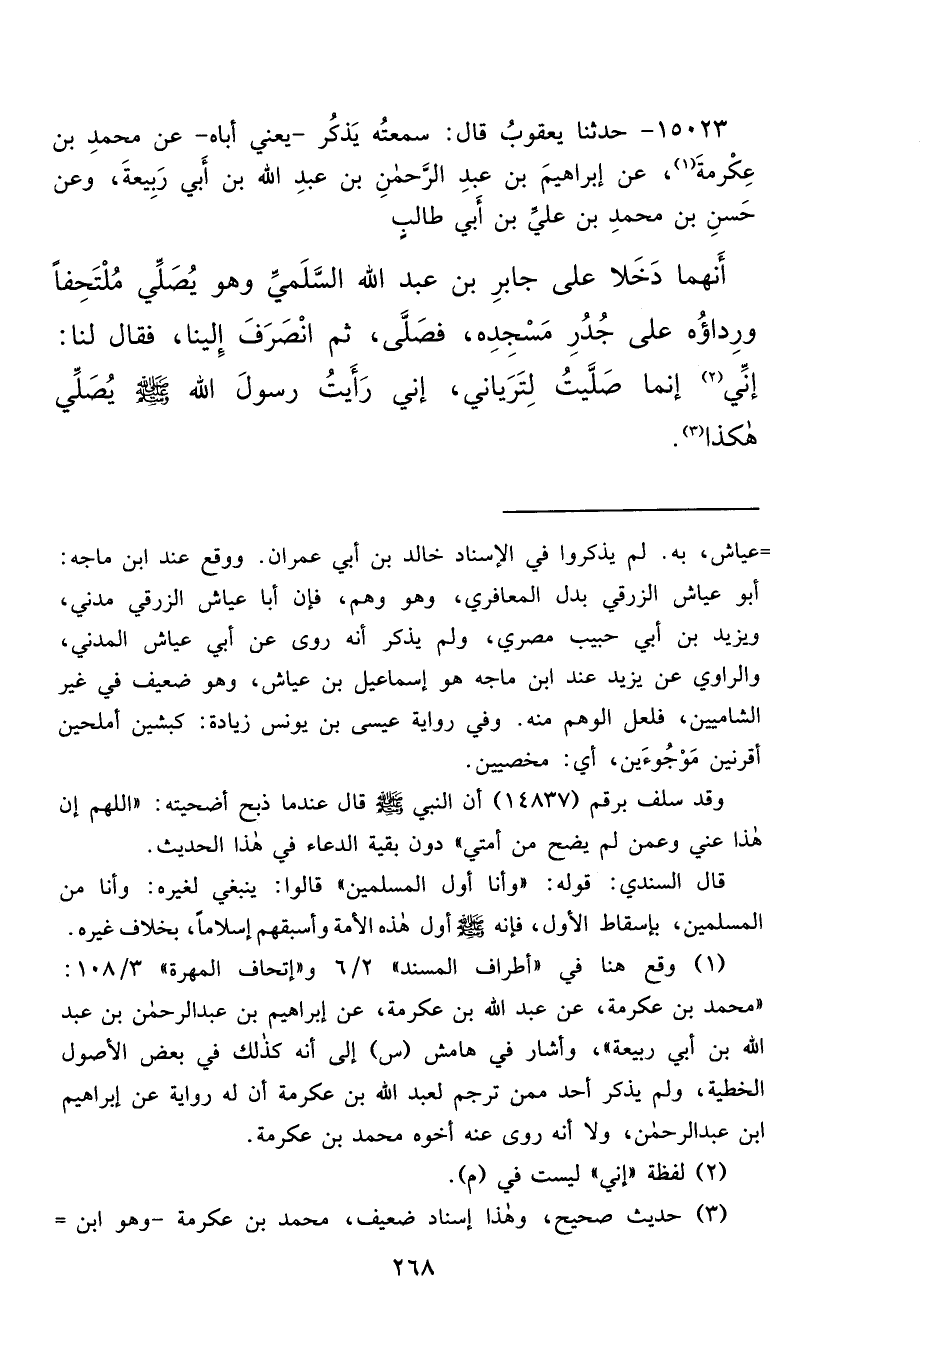 ١٥٠٢٣- حدثنا يعقوبُ قال: سمعتُه يَذكُر -يعني أباه- عن محمدِ بن
عِكْرمةَ(١)، عن إبراهيمَ بن عبدِ الرَّحمٰنِ بن عبدِ الله بن أبي رَبِيعةَ، وعن
حَسنِ بن محمدِ بن عليِّ بن أَبي طالبٍ
أَنهما دَخَلا على جابرِ بن عبد الله السَّلَميِّ وهو يُصَلِّي مُلْتَحِفاً
ورِداؤُه على جُدُرِ مَسْجِدِه، فصَلَّى، ثم انْصَرَفَ إِلينا، فقال لنا:
إنِّي(٢) إنما صَلَّيتُ لِتَرَياني، إني رَأَيتُ رسولَ الله ﷺ يُصَلِّي
هٰكذا(٣).
=عياش، به. لم يذكروا في الإسناد خالد بن أبي عمران. ووقع عند ابن ماجه:
أبو عياش الزرقي بدل المعافري، وهو وهم، فإن أبا عياش الزرقي مدني،
ويزيد بن أبي حبيب مصري، ولم يذكر أنه روى عن أبي عياش المدني،
والراوي عن يزيد عند ابن ماجه هو إسماعيل بن عياش، وهو ضعيف في غير
الشاميين، فلعل الوهم منه. وفي رواية عيسى بن يونس زيادة: كبشين أملحين
أقرنين مَوْجُوءَين، أي: مخصيين.
وقد سلف برقم (١٤٨٣٧) أن النبي ﷺ قال عندما ذبح أضحيته: «اللهم إن
هٰذا عني وعمن لم يضح من أمتي» دون بقية الدعاء في هٰذا الحديث.
قال السندي: قوله: «وأنا أول المسلمين» قالوا: ينبغي لغيره: وأنا من
المسلمين، بإسقاط الأول، فإنه ﷺ أول هٰذه الأمة وأسبقهم إسلاماً، بخلاف غيره.
(١) وقع هنا في «أطراف المسند» ٦/٢ و«إتحاف المهرة» ١٠٨/٣:
«محمد بن عكرمة، عن عبد الله بن عكرمة، عن إبراهيم بن عبدالرحمٰن بن عبد
الله بن أبي ربيعة»، وأشار في هامش (س) إلى أنه كذٰلك في بعض الأصول
الخطية، ولم يذكر أحد ممن ترجم لعبد الله بن عكرمة أن له رواية عن إبراهيم
ابن عبدالرحمٰن، ولا أنه روى عنه أخوه محمد بن عكرمة.
(٢) لفظة «إني» ليست في (م).
(٣) حديث صحيح، وهٰذا إسناد ضعيف، محمد بن عكرمة -وهو ابن =
٢٦٨